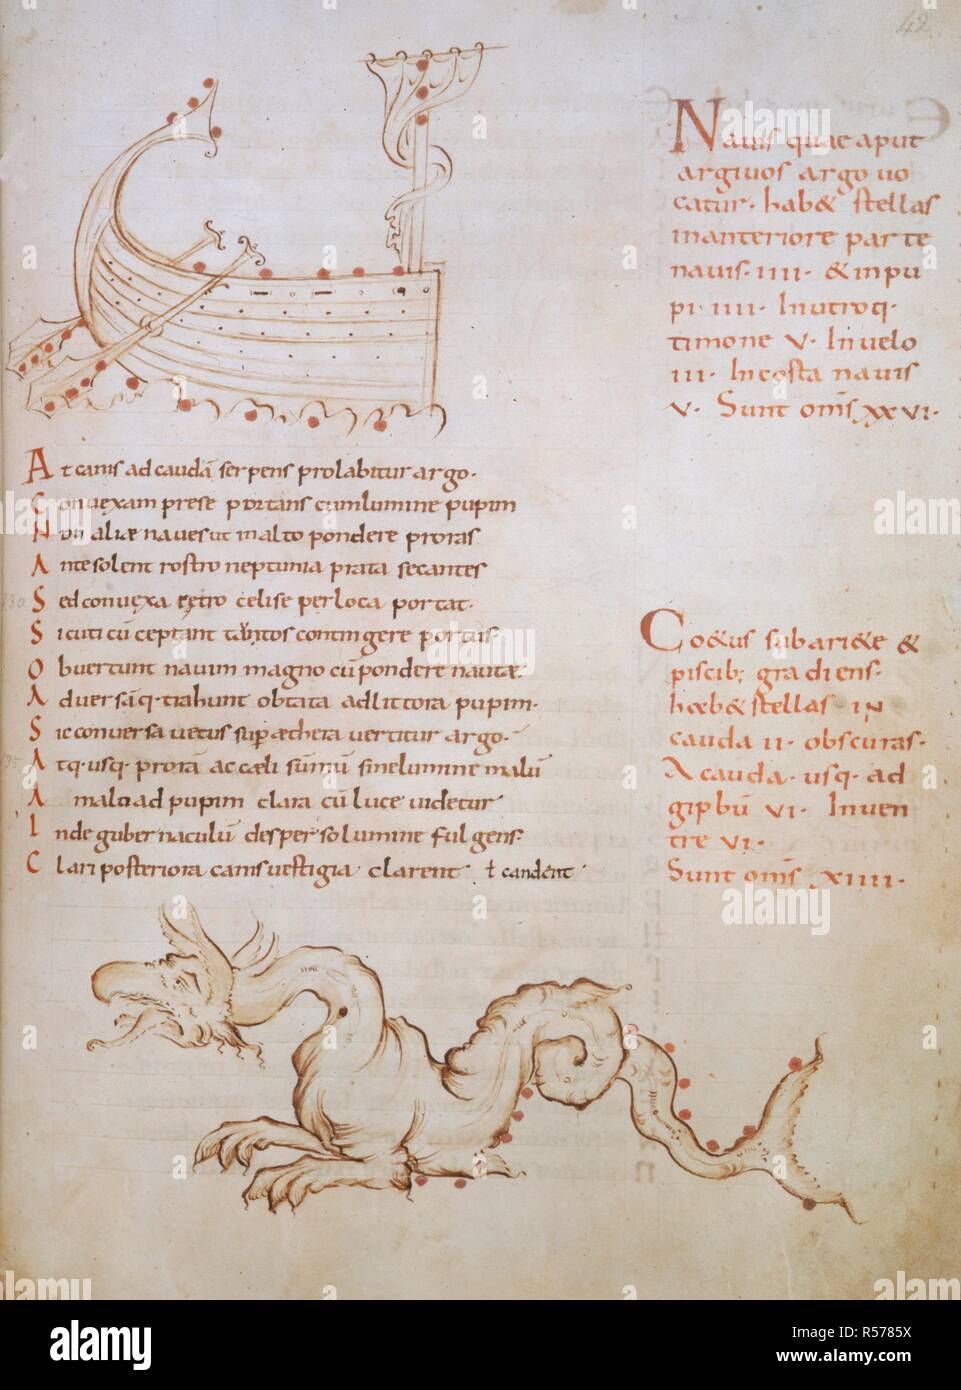 42
Navis quae aput
argivos argo vo
catur. hab& stellas
inanteriore parte
navis. IIII. & inpu
pi IIII. Inutroq.
timone V. In velo
III. In costa navis
V. Sunt om̄s XXVI.
At canis ad caudā serpens prolabitur argo.
Convexam prese portans cum lumine pupim
Non aliae naves ut malto pondere proras
Ante solent rostro neptunia prata secantes
Sed convexa retro celi se per loca portat.
Sicuti cū ceptant contingere portus.
Obvertunt navim magno cū pondere nautae.
Adversāq. trahunt obtata ad littora pupim.
Sic conversa vetus sup aethera vertitur argo.
Atq. usq. prorā ac caeli sūmū sine lumine malū
A malo ad pupim clara cū luce videtur
Inde gubernaculū desperso lumine fulgens.
Clari posteriora canis vestigia clarent ł candent
Co&us sub ari&e &
piscib; gradiens.
hab& stellas IN
cauda II. obscuras.
A cauda. usq. ad
gipbū VI. In ven
tre VI.
Sunt om̄s XIIII.
alamy
alamy stock photo
Image ID: R5785X
www.alamy.com